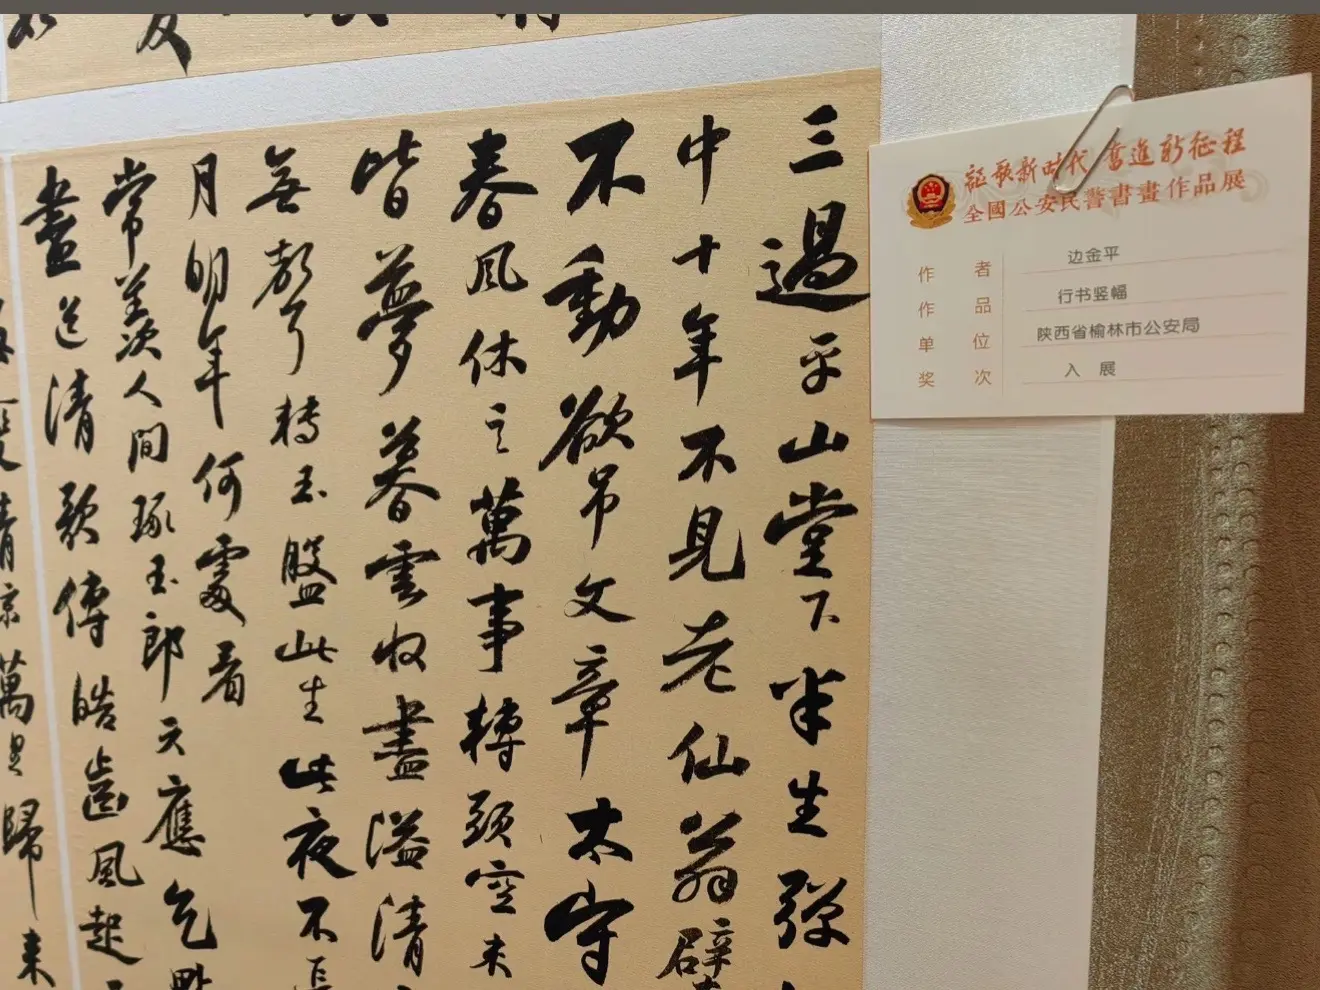 三過平山堂下半生彈
中十年不見老仙翁壁
不動欲吊文章木守
春風休言萬事轉頭空未
皆夢暮雲收盡溢清
無聲轉玉盤此生此夜不長
月明年何處看
常羨人間琢玉郎天應乞點
盡道清歌傳皓齒風起
清涼萬里歸來
謳歌新时代 奮進新征程
全國公安民警書畫作品展
作者 边金平
作品 行书竖幅
单位 陕西省榆林市公安局
奖次 入展